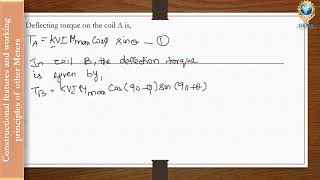 Constructional features and working
principles of other Meters
Deflecting torque on the coil A is,
T_A = KVI M_max cosφ sinθ — ①
In coil B, the deflection torque
is given by,
T_B = KVI M_max Cos(90-φ) sin(90+θ)